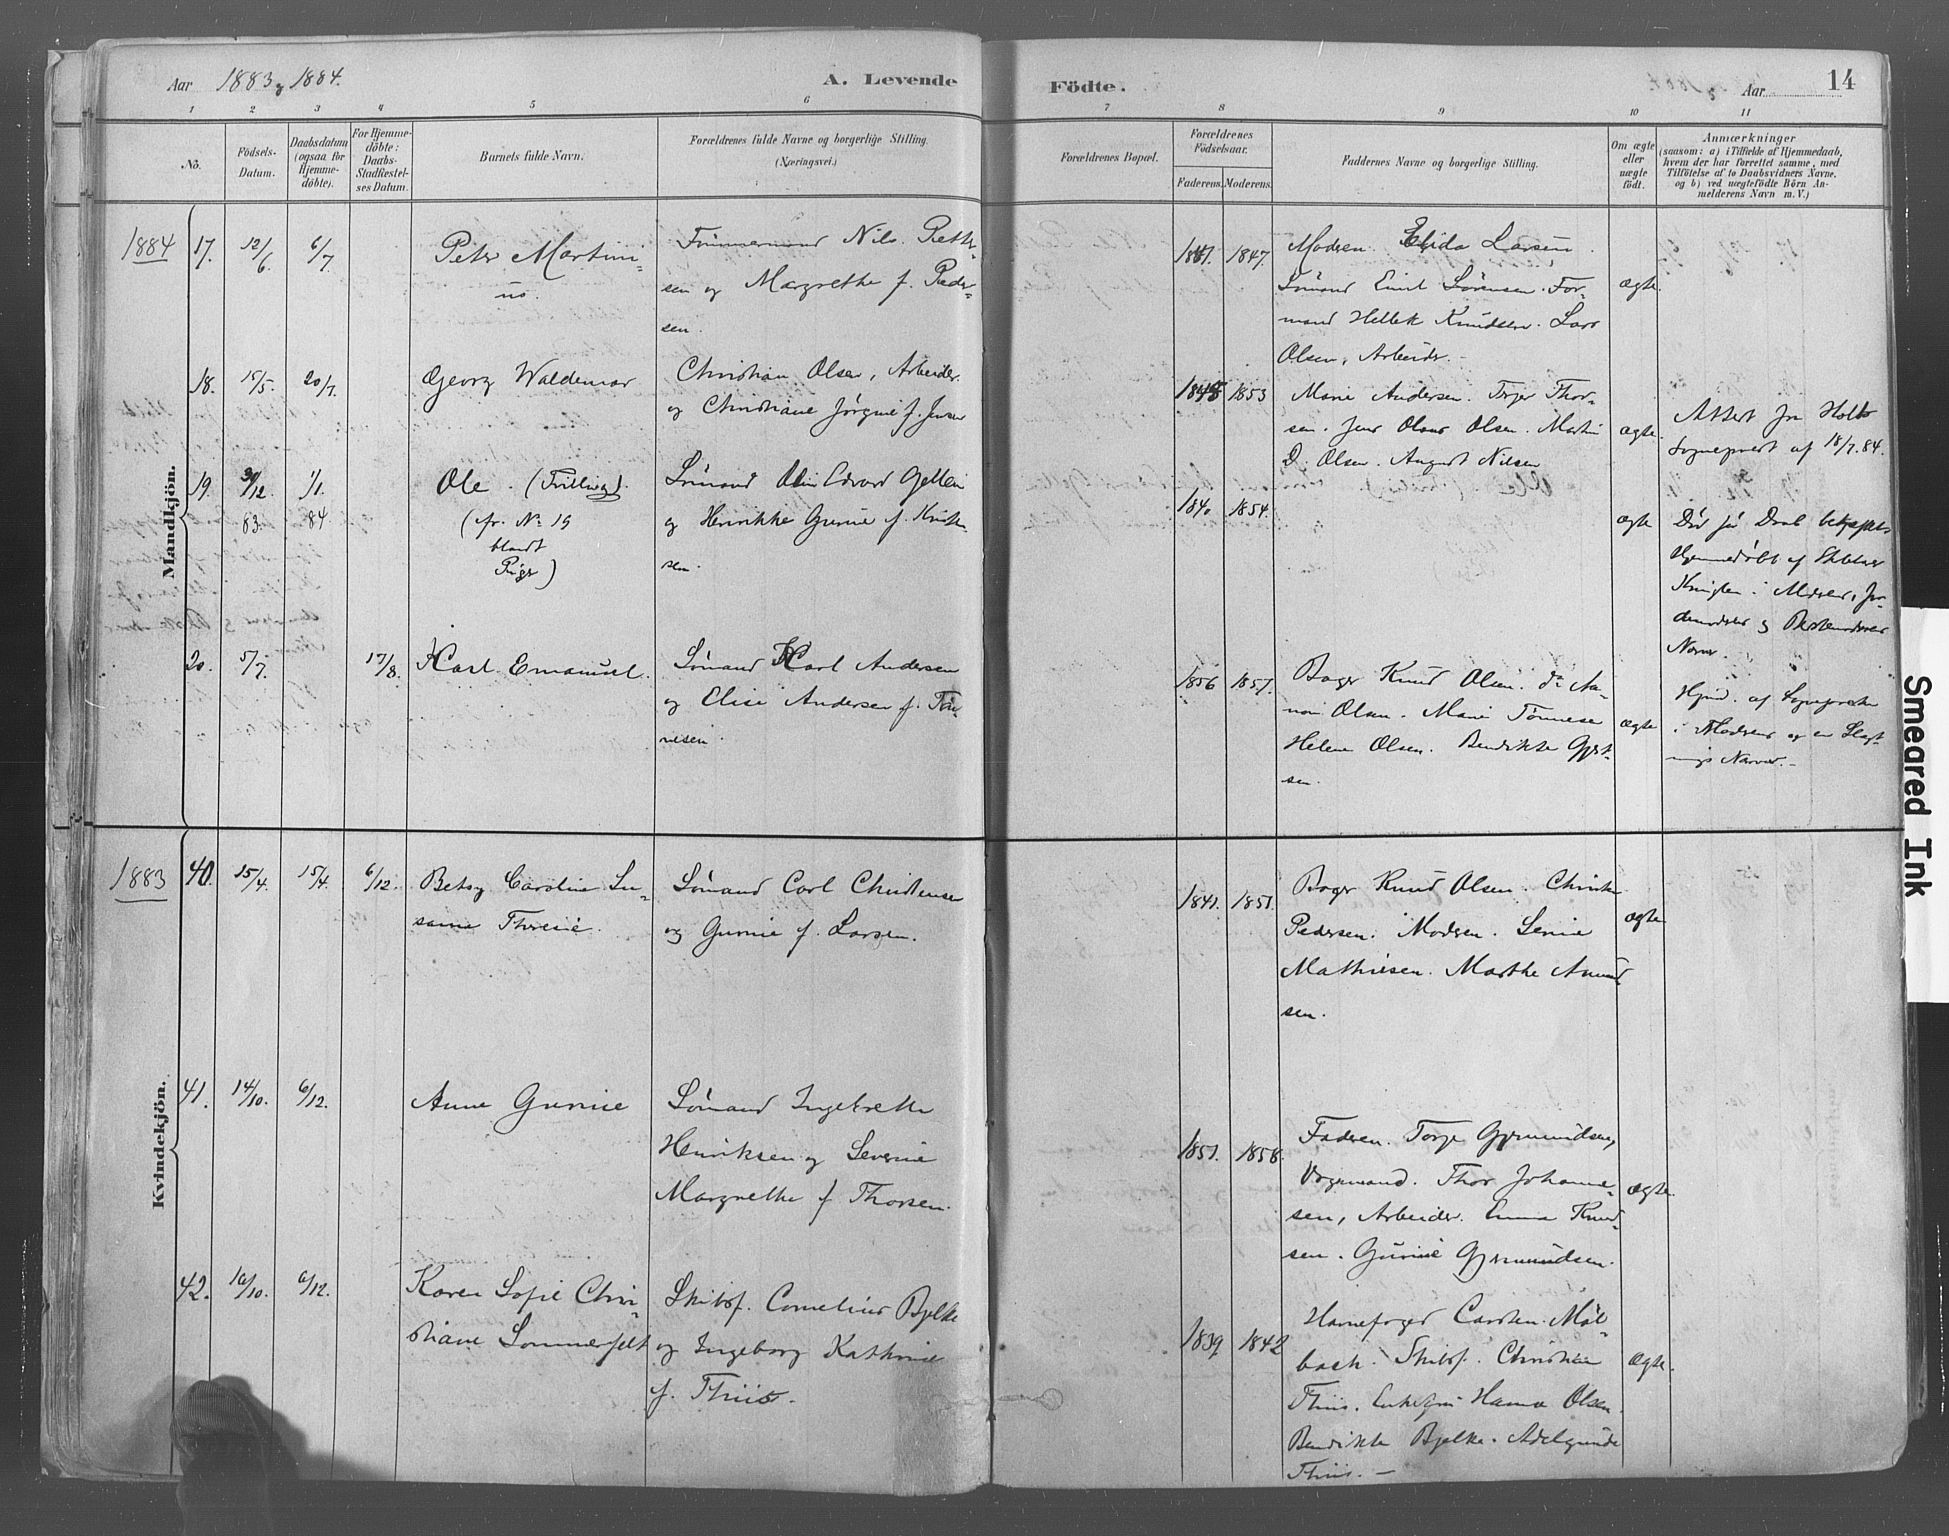 Aar 1883 og 1884.
A. Levende
Födte.
Aar
14
1 2 3 4 5 6 7 8 9 10 11
No.
Födsels-
Datum.
Daabsdatum
(ogsaa for
Hjemme-
döbte).
For Hjemme-
döbte:
Daabs-
Stadfæstel-
ses Datum.
Barnets fulde Navn.
Forældrenes fulde Navne og borgerlige Stilling.
(Næringsvei.)
Forældrenes Bopæl.
Forældrenes
Födselsaar.
Faderens. Moderens.
Faddernes Navne og borgerlige Stilling.
Om ægte
eller
uægte
födt.
Anmærkninger
(saasom: a) i Tilfælde af Hjemmedaab,
hvem der har forrettet samme, med
Tilföielse af to Daabsvidners Navne,
og b) ved uægtefödte Börn An-
melderens Navn m. V.)
Mandkjön.
1884 17. 12/6. 6/7
Peter Martini-
us.
Tømmermand Nils Petter-
sen og Margrethe f. Peder-
sen.
1847.
Modren. Elida Larsen.
Sømand Emil Sørensen. For-
mand Hellek Knudsen. Lars
Olsen, Arbeider. -
ægte.
18. 15/5. 20/7.
Georg Waldemar
Christian Olsen, Arbeider
og Christiane Jørgine f. Jensen
1853
Marie Andersen. Terjer Thor-
sen. Jens Olaus Olsen. Martin
D. Olsen. August Nilsen
ægte.
Attest fra Holts
Sognepræst af 18/7.84.
19. 31/12. 83. 1/1. 84
Ole. (Trilling).
(cfr. No 19
blandt
Piger)
Sømand Edvard Gjellen
og Henrikke Gurine f. Knut-
sen.
1840 1854.
ægte
Død før Daab
Hjemmedøbt af
i Modrens,
og
Nærvær.
20. 5/7. 17/8.
Karl Emanuel.
Sømand Karl Andersen
og Elise Andersen f. Tøn-
nesen.
1856 1857.
Bager Knud Olsen. do Aa-
non Olsen. Marie Tønnesen
Helene Olsen. Bendikte Gjert-
sen.
ægte
Hjmd. af Sognepræsten
i Modrens og en Slægt-
nings Nærvær. -
Kvindekjön.
1883 40. 15/4. 15/4. 6/12.
Betsy Caroline Su-
sanne Theresie.
Sømand Carl Christensen
og Gunnie f. Larsen.
1841. 1851.
Bager Knud Olsen. Christen
Pedersen. Modren. Serine
Mathiesen. Marthe Amund
sen.
ægte
41. 14/10. 6/12.
Anne Gurine
Sømand Ingebrett
Henriksen og Severine
Margrethe f. Thorsen.
1851. 1858.
Fadren. Torje Gjermundsen,
Vognmand. Thor Johanne-
sen, Arbeider. Emma Knud-
sen. Gurine Gjermundsen.
ægte.
42. 16/10. 6/12.
Karen Sofie Chri-
stiane Sommerfelt
Skibsf. Cornelius Bjelke
og Ingeborg Kathrine
f. Thiis.
1839 1842
Havnefoged Carsten Møl-
bach. Skibsf. Christian
Thiis. Enkefru Hanna Olsen.
Bendikte Bjelke. Adelgunde
Thiis. -
ægte.
Smeared Ink